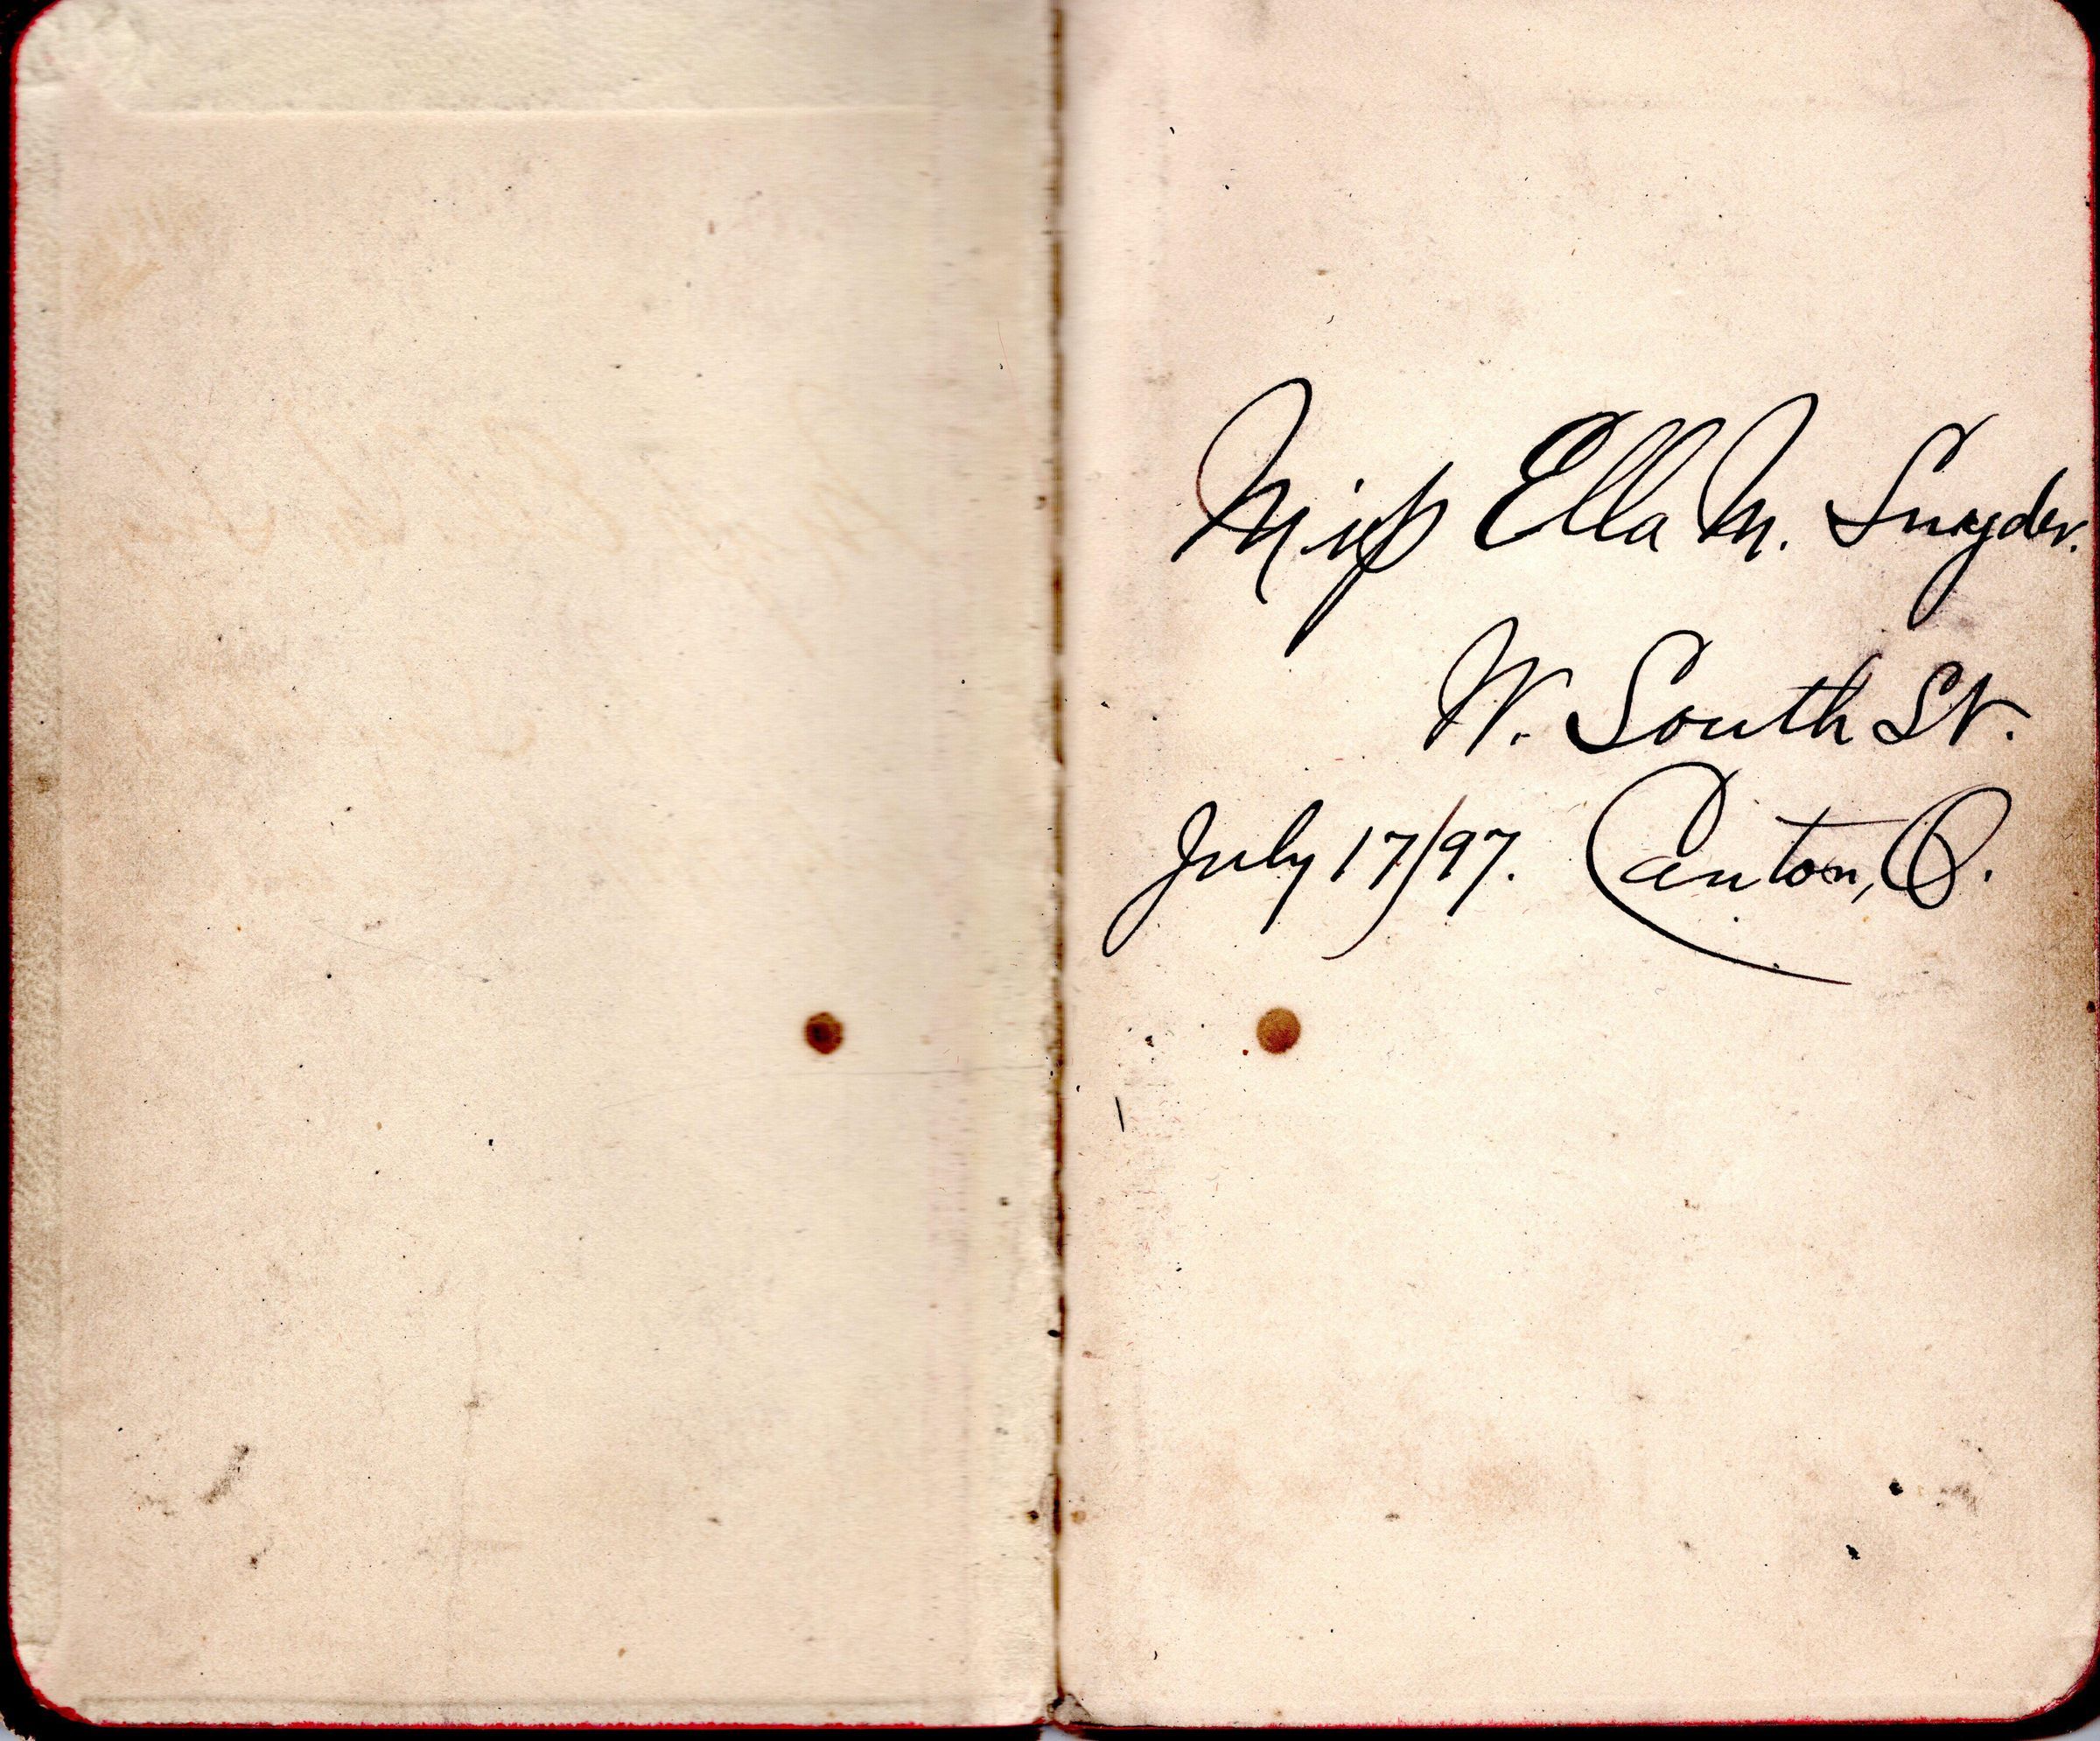 Miss Ella M. Snyder.
W. South St.
July 17/97. Canton, O.